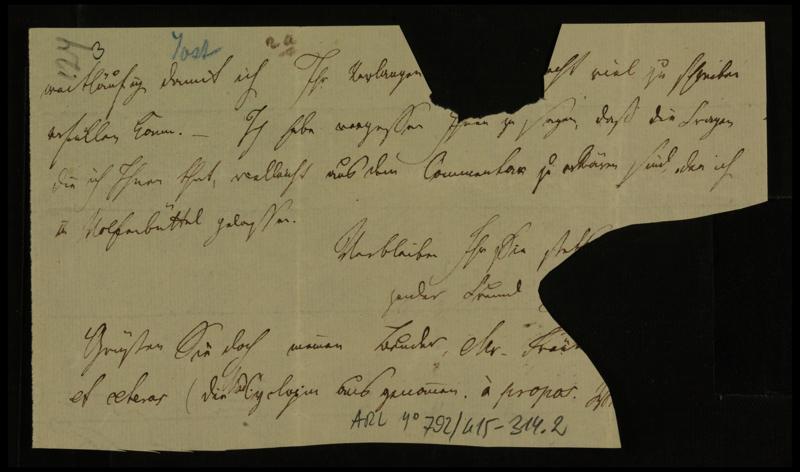 124 3 Jost 2a
weitläufig damit ich Ihr Verlangen recht viel zu schreiben
erfüllen kann. – Ich habe vergessen Ihnen zu sagen, daß die Fragen
die ich Ihnen that, vielleicht aus dem Commentar zu erklären sind, den ich
in Wolfenbüttel gelassen.
Verbleiben Ihr Sie
Freund
Grüßen Sie doch meinen Bruder, Mr.
et ceteras (die ausgenommen. à propos.
ARC 4° 792/A15-314.2